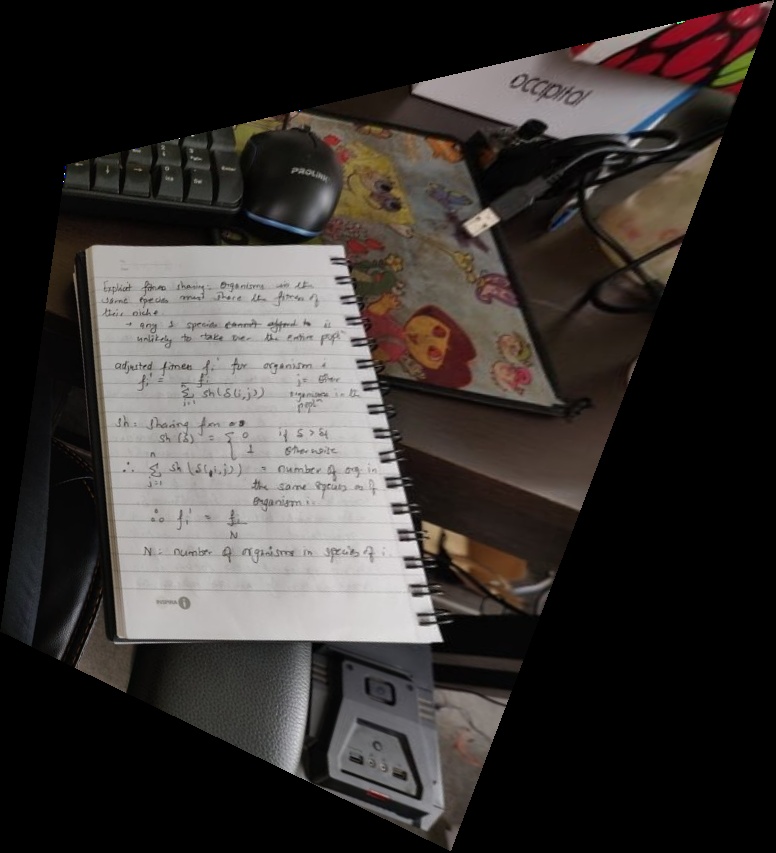 occipital
PROLINK
Explicit fitness sharing: Organisms in the
same species must share the fitness of
their niche
→ any 1 species cannot afford to is
unlikely to take over the entire popl^n
adjusted fitness fi' for organism i
fi' = fi / Σ_{j=1}^{n} sh(δ(i,j))    j = other organisms in the popl^n
sh: sharing fxn
sh(δ) = { 0 if δ > δt
1 otherwise
∴ Σ_{j=1}^{n} sh(δ(i,j)) = number of org. in
the same species as of
organism i.
∴ fi' = fi / N
N = number of organisms in species of i.
INSPIRA i